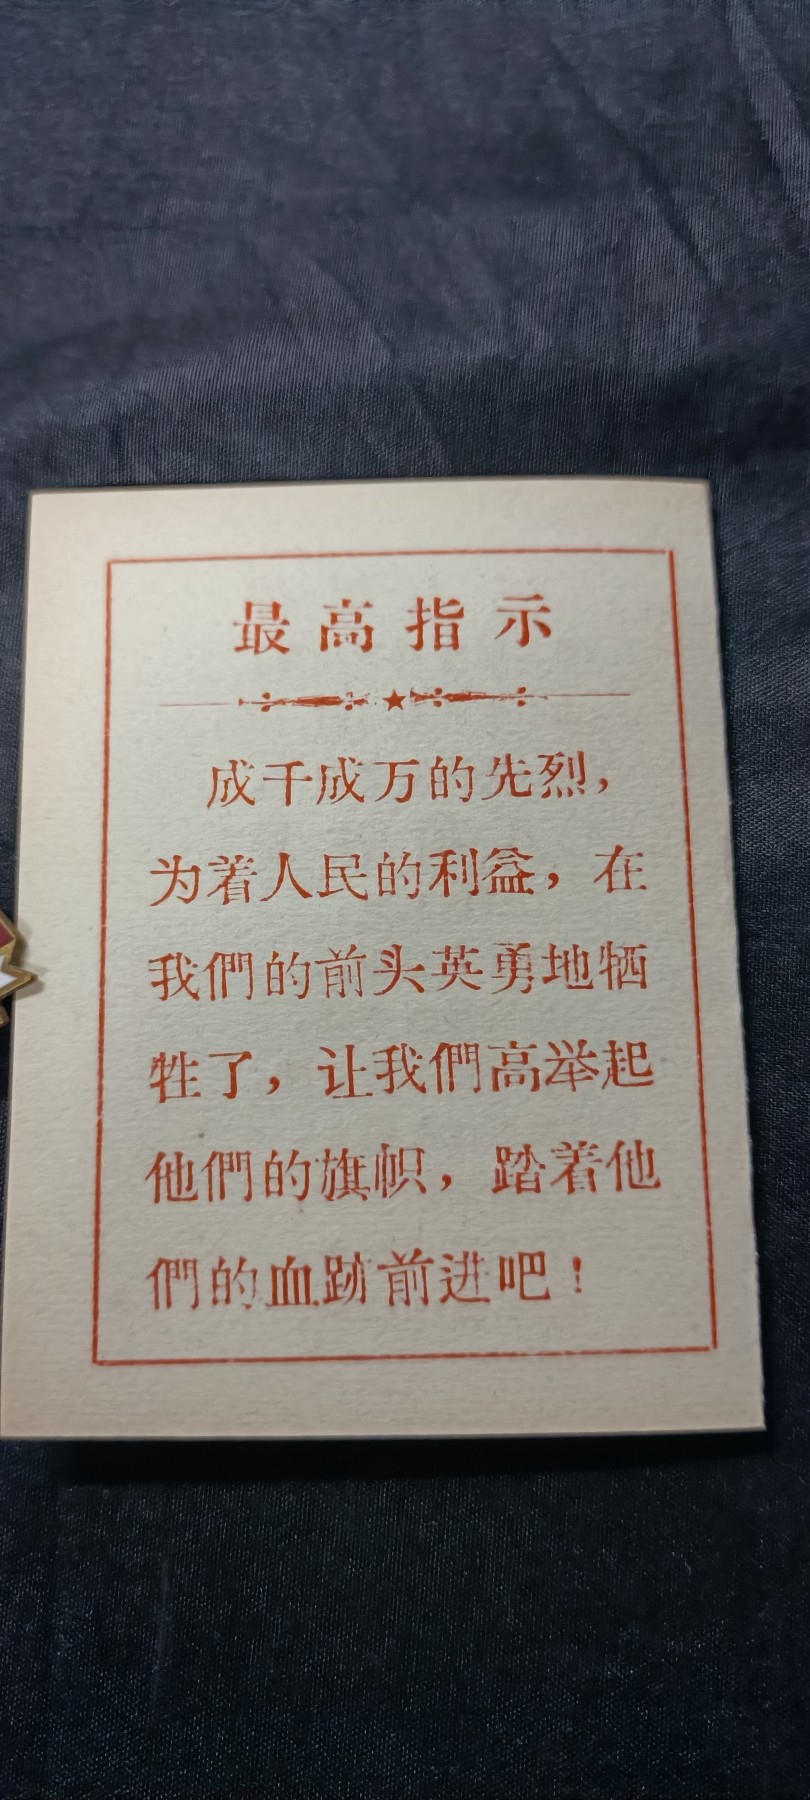 最高指示
成千成万的先烈，
为着人民的利益，在
我們的前头英勇地牺
牲了，让我們高举起
他們的旗帜，踏着他
們的血跡前进吧！